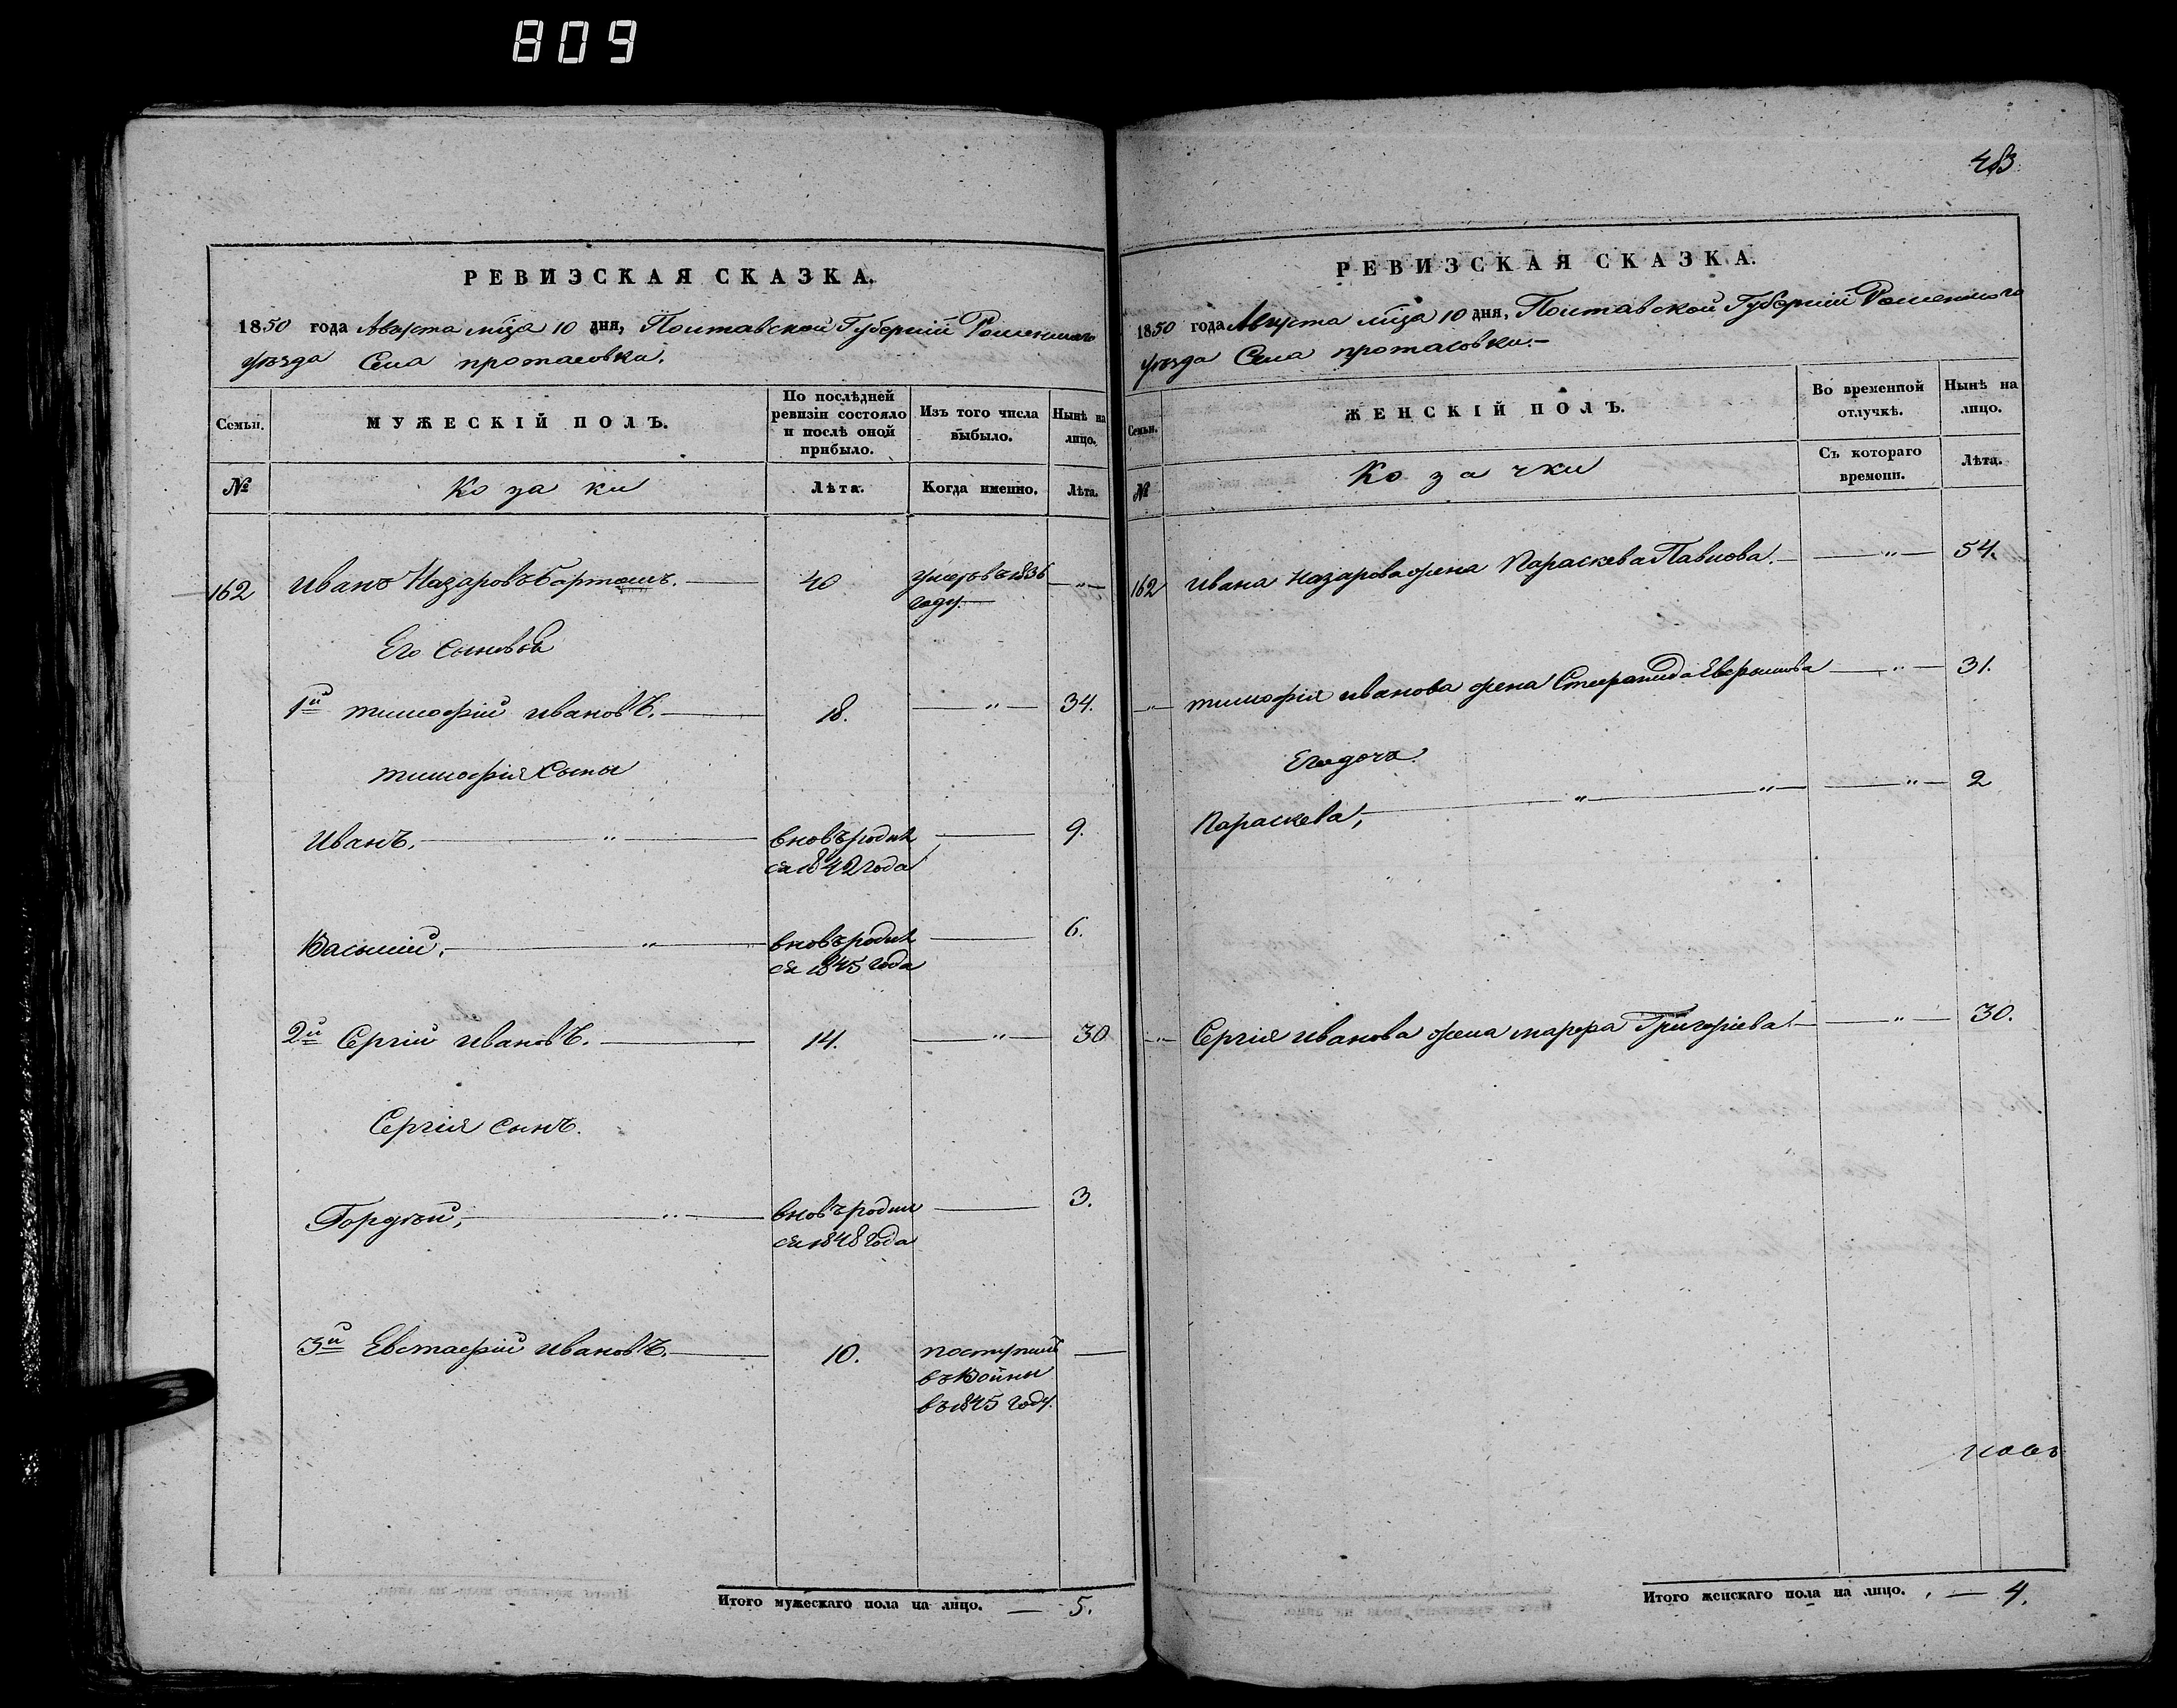 809
РЕВИЗСКАЯ СКАЗКА.
1850 года Августа мѣца 10 дня, Полтавской Губерніи Роменского
уѣзда Села протасовки.
Семьи. МУЖЕСКІЙ ПОЛЪ. По послѣдней ревизіи состояло и послѣ оной прибыло. Изъ того числа выбыло. Нынѣ на лицо.
№ Козаки Лѣта. Когда именно. Лѣта.
162 Иванъ Назаровъ Бартошъ. 40 умеръ въ 1836 „
году.
Его сыновья
1й тимофій ивановъ. 18. „ 34.
тимофія сыны
Иванъ. „ вновь родил 9.
ся 1842 года
Василий. „ вновь родил 6.
ся 1845 года
2й Сергій ивановъ. 14. „ 30
Сергія сынъ.
Гордѣй, „ вновь родил 3.
ся 1848 года
3й Евстафій ивановъ. 10. поступилъ
въ Войны
въ 1845 году.
Итого мужескаго пола на лицо. 5.
483
РЕВИЗСКАЯ СКАЗКА.
1850 года Августа мѣца 10 дня, Полтавской Губерніи Роменского
уѣзда Села протасовки.
Семьи. ЖЕНСКІЙ ПОЛЪ. Во временной отлучкѣ. Нынѣ на лицо.
№ Козачки Съ котораго времени. Лѣта.
162 Ивана Назарова жена Параскева Павлова. „ 54.
„ тимофія иванова жена Стефанида „ 31.
Его дочь
Параскева, „ „ „ 2
„ Сергія иванова жена марфа Григоріева „ 30.
Итого женскаго пола на лицо. 4.